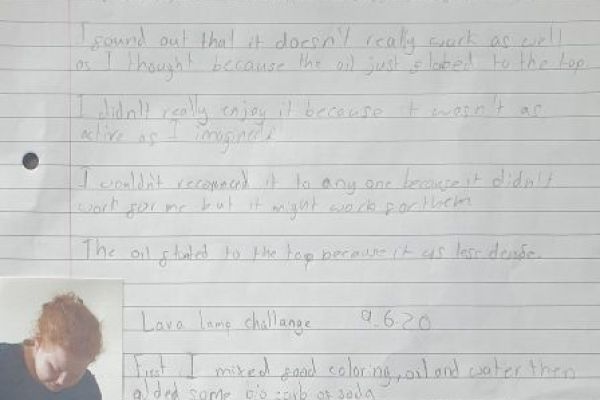 I found out that it doesn't really work as well
as I thought because the oil just floted to the top.
I didn't really enjoy it because it wasn't as
active as I imagined.
I wouldn't recomend it to any one because it didn't
work for me but it might work for them
The oil floted to the top because it is less dense.
Lava lamp challange 9.6.20
First I mixed food coloring, oil and water then
added some bio carb of soda